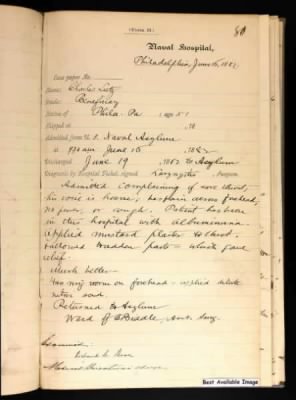 (Form 21.)
80
Naval Hospital,
Philadelphia, June 16, 1882
Case paper No.
Name: Charles Lutz
Rate: Beneficiary
Native of Phila. Pa age 51
Shipped at , 18
Admitted from U. S. Naval Asylum
at 9.30 am June 16 1882
Discharged June 19 1882 to Asylum
Diagnosis by Hospital Ticket, signed Laryngitis Surgeon.
Admitted complaining of sore throat,
his voice is hoarse, has pain across forehead,
no fever, or cough. Patient has been
in this hospital with albuminuria
Applied mustard plaster to throat.
relief.
Much better
Has ring worm on forehead - applied dilute
nitric acid.
Returned to Asylum
Ward E. Biddle, Asst. Surg.
Examined:
Medical Director
Best Available Image